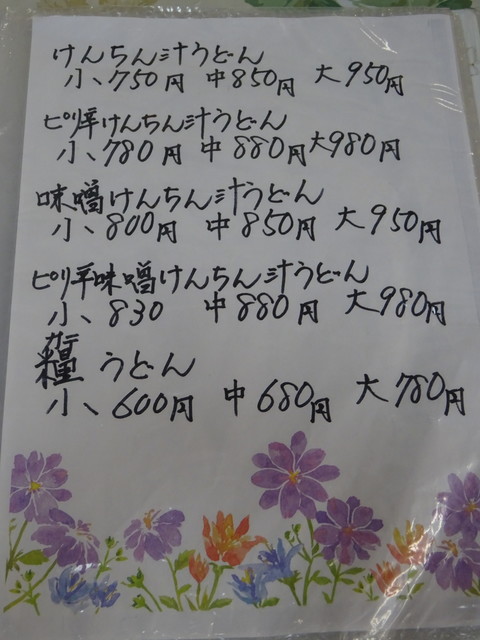 けんちん汁うどん
小、750円 中850円 大950円
ピリ辛けんちん汁うどん
小、780円 中880円 大980円
味噌けんちん汁うどん
小、800円 中850円 大950円
ピリ辛味噌けんちん汁うどん
小、830 中880円 大980円
カテ
糧うどん
小、600円 中680円 大780円